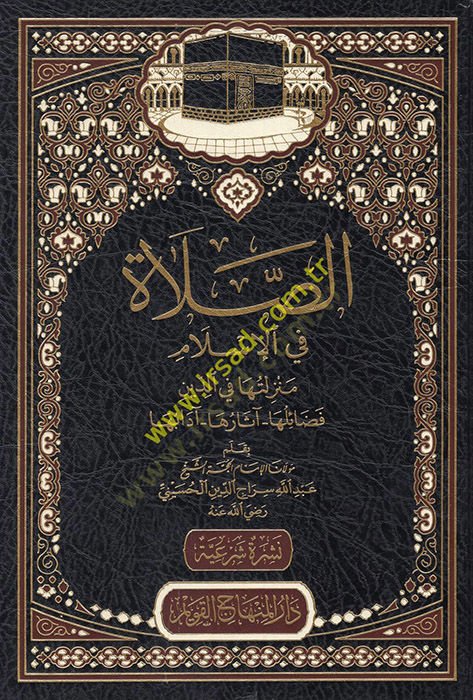 الصَّلَاة
في الإسلام
منزلتها في الدين
فضائلها - آثارها - آدابها
بقلم
مولانا الإمام الحجة الشيخ
عبد الله سراج الدين الحسيني
رضي الله عنه
نشرة شرعية
دار المنهاج القويم
www.irsad.com.tr